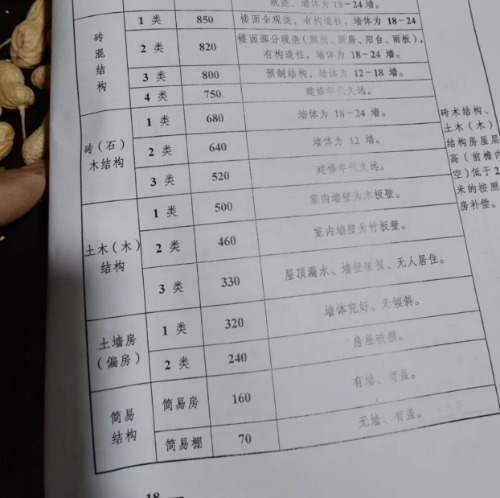 观浇，墙体为 18－24 墙。
砖混结构
1 类 850 楼面全现浇，有构造柱，墙体为 18－24
2 类 820 楼面部分现浇（厕所、厨房、阳台、雨板），
有构造柱，墙体为 18－24 墙。
3 类 800 预制结构，墙体为 12－18 墙。
4 类 750 建修年代久远。
砖（石）
木结构
1 类 680 墙体为 18－24 墙。
2 类 640 墙体为 12 墙。
3 类 520 建修年代久远。
土木（木）
结构
1 类 500 室内墙壁为木板壁。
2 类 460 室内墙壁为竹板壁。
3 类 330 屋顶漏水、墙壁 无人居住。
土墙房
（偏房）
1 类 320 墙体完好、无倾斜。
2 类 240 房屋破损。
简易
结构
简易房 160 有墙、有盖。
简易棚 70 无墙、有盖。
砖木结构、
土木（木）
结构房屋层
高（前檐
空）低于2
米的按照
房补偿。
18